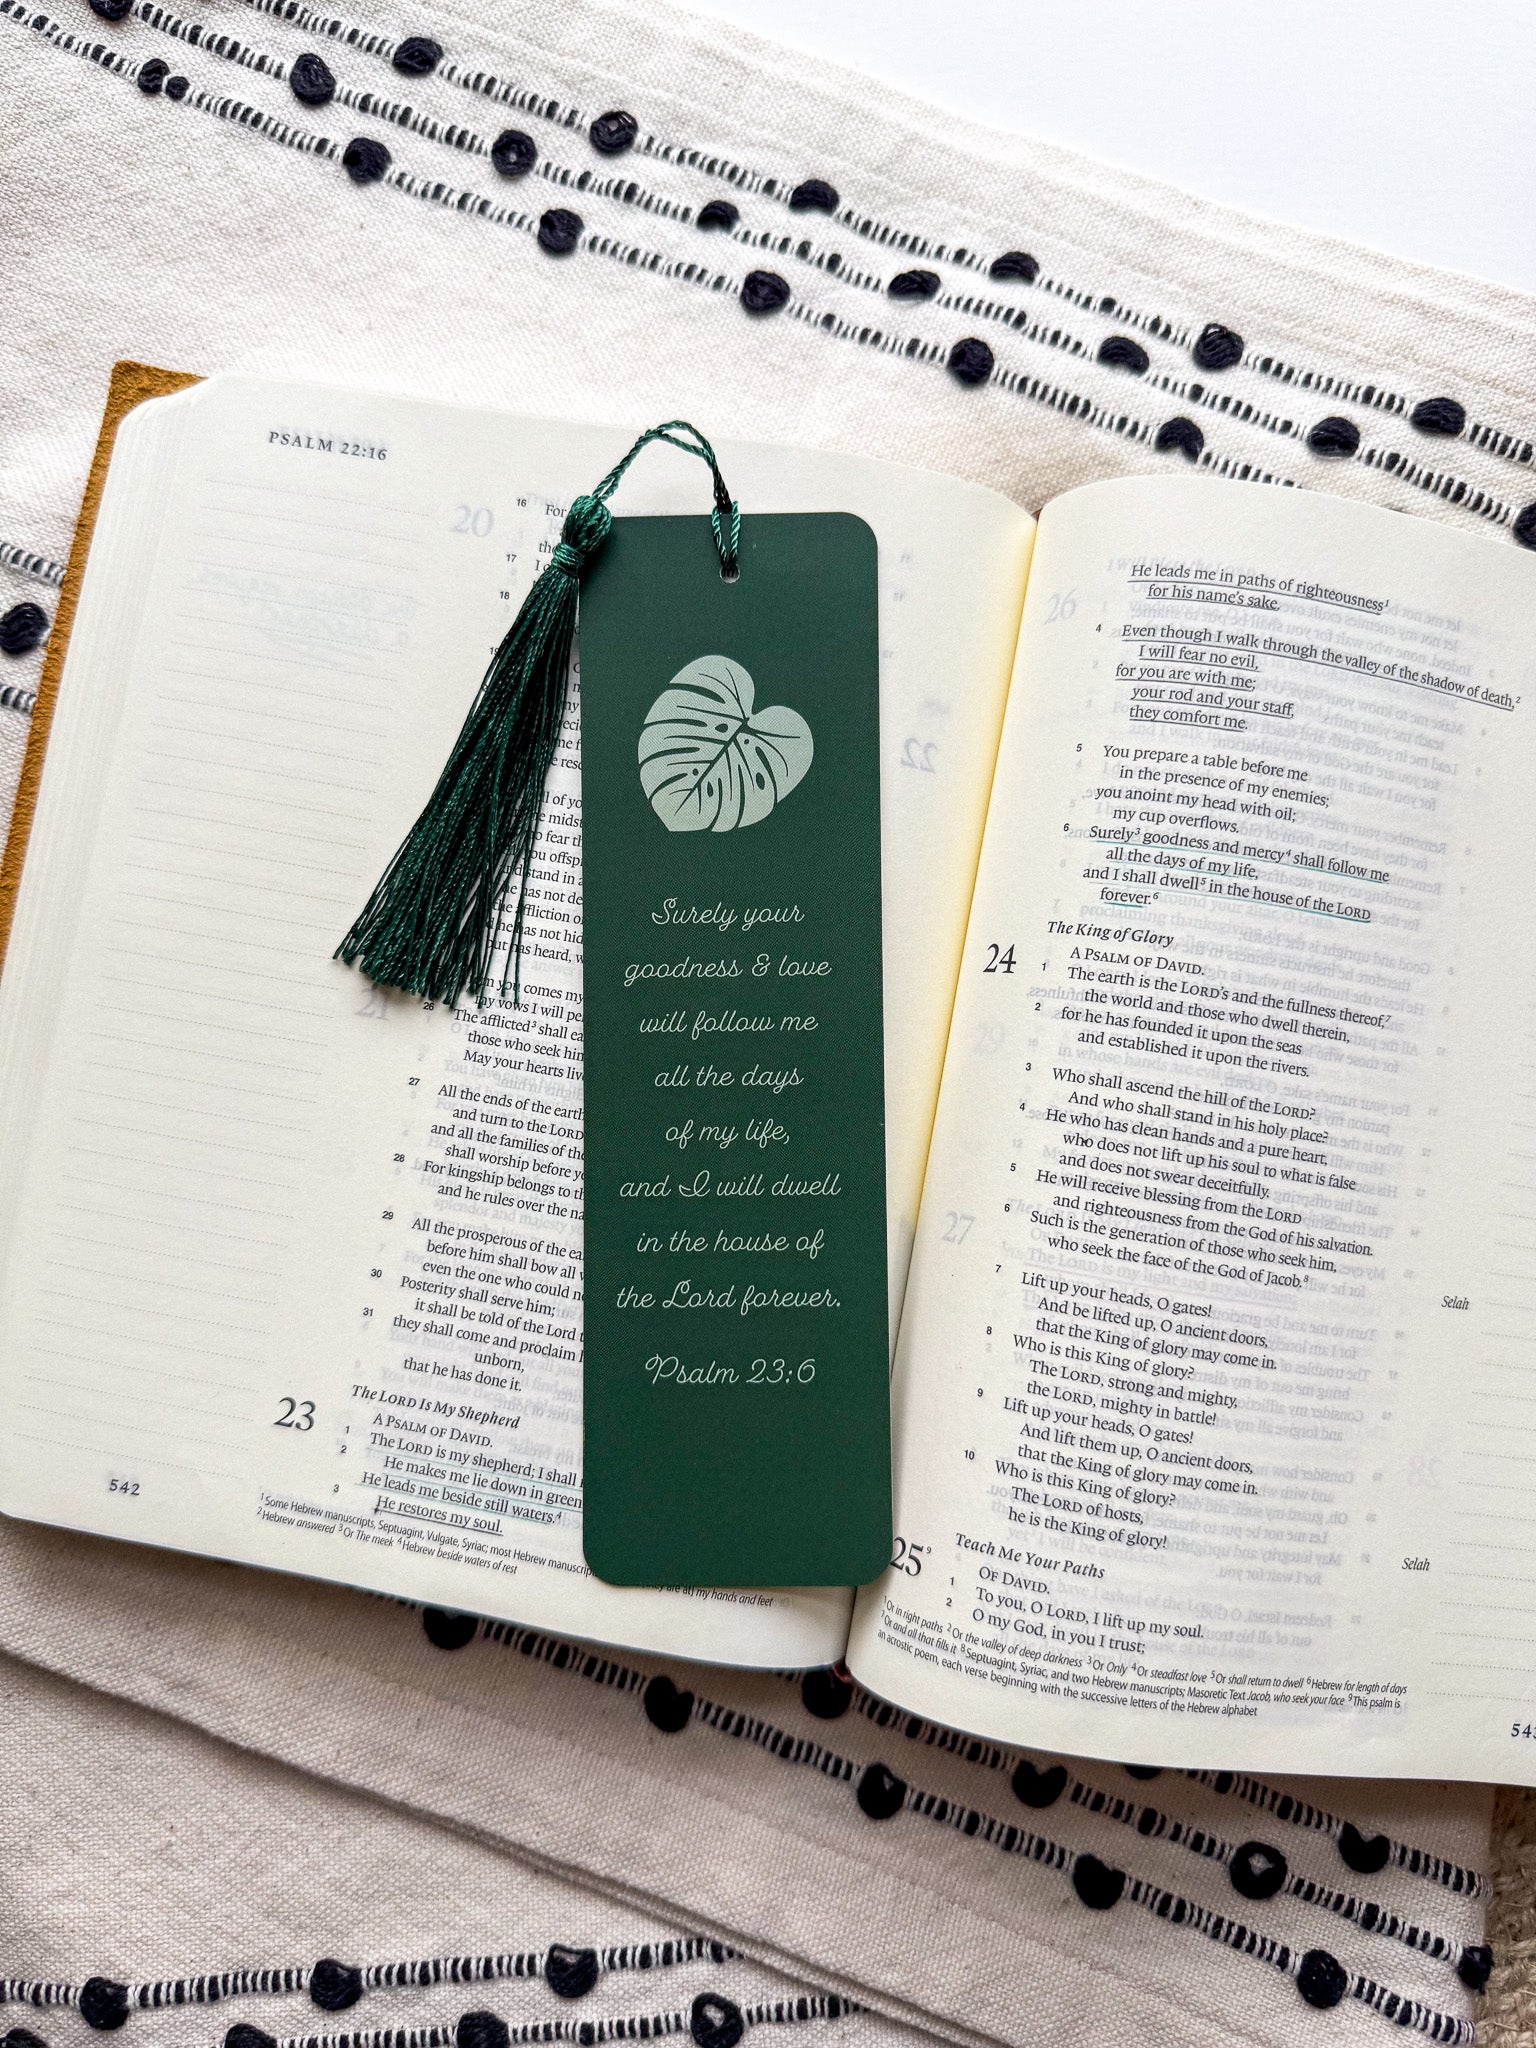 PSALM 22:16
16 For
the
17 I c
18
19
22
of you
midst
to fear th
you offsp
and stand in a
has not de
affliction o
he has not hid
but has heard, w
you comes my
my vows I will pe
26 The afflicted³ shall ea
those who seek him
May your hearts live
27 All the ends of the earth
and turn to the LORD
and all the families of the
shall worship before y
28 For kingship belongs to th
and he rules over the na
29 All the prosperous of the ea
before him shall bow all
even the one who could no
30 Posterity shall serve him;
it shall be told of the Lord t
31 they shall come and proclaim h
unborn,
that he has done it.
The LORD Is My Shepherd
23 A PSALM OF DAVID.
1 The LORD is my shepherd; I shall
2 He makes me lie down in green
He leads me beside still waters.⁴
3 He restores my soul.
¹Some Hebrew manuscripts, Septuagint, Vulgate, Syriac; most Hebrew manuscrip (they are at) my hands and feet
²Hebrew answered ³Or The meek ⁴Hebrew beside waters of rest
542
Surely your
goodness & love
will follow me
all the days
of my life,
and I will dwell
in the house of
the Lord forever.
Psalm 23:6
He leads me in paths of righteousness¹
for his name's sake.
4 Even though I walk through the valley of the shadow of death,²
I will fear no evil,
for you are with me;
your rod and your staff,
they comfort me.
5 You prepare a table before me
in the presence of my enemies;
you anoint my head with oil;
my cup overflows.
6 Surely³ goodness and mercy⁴ shall follow me
all the days of my life,
and I shall dwell⁵ in the house of the LORD
forever.⁶
The King of Glory
24 A PSALM OF DAVID.
1 The earth is the LORD's and the fullness thereof,⁷
the world and those who dwell therein,
2 for he has founded it upon the seas
and established it upon the rivers.
3 Who shall ascend the hill of the LORD?
And who shall stand in his holy place?
4 He who has clean hands and a pure heart,
who does not lift up his soul to what is false
and does not swear deceitfully.
5 He will receive blessing from the LORD
and righteousness from the God of his salvation.
6 Such is the generation of those who seek him,
who seek the face of the God of Jacob.⁸ Selah
7 Lift up your heads, O gates!
And be lifted up, O ancient doors,
that the King of glory may come in.
8 Who is this King of glory?
The LORD, strong and mighty,
the LORD, mighty in battle!
9 Lift up your heads, O gates!
And lift them up, O ancient doors,
that the King of glory may come in.
10 Who is this King of glory?
The LORD of hosts,
he is the King of glory! Selah
Teach Me Your Paths
25⁹ OF DAVID.
1 To you, O LORD, I lift up my soul.
2 O my God, in you I trust;
¹Or in right paths ²Or the valley of deep darkness ³Or Only ⁴Or steadfast love ⁵Or shall return to dwell ⁶Hebrew for length of days
⁷Or and all that fills it ⁸Septuagint, Syriac, and two Hebrew manuscripts; Masoretic Text Jacob, who seek your face ⁹This psalm is
an acrostic poem, each verse beginning with the successive letters of the Hebrew alphabet
543